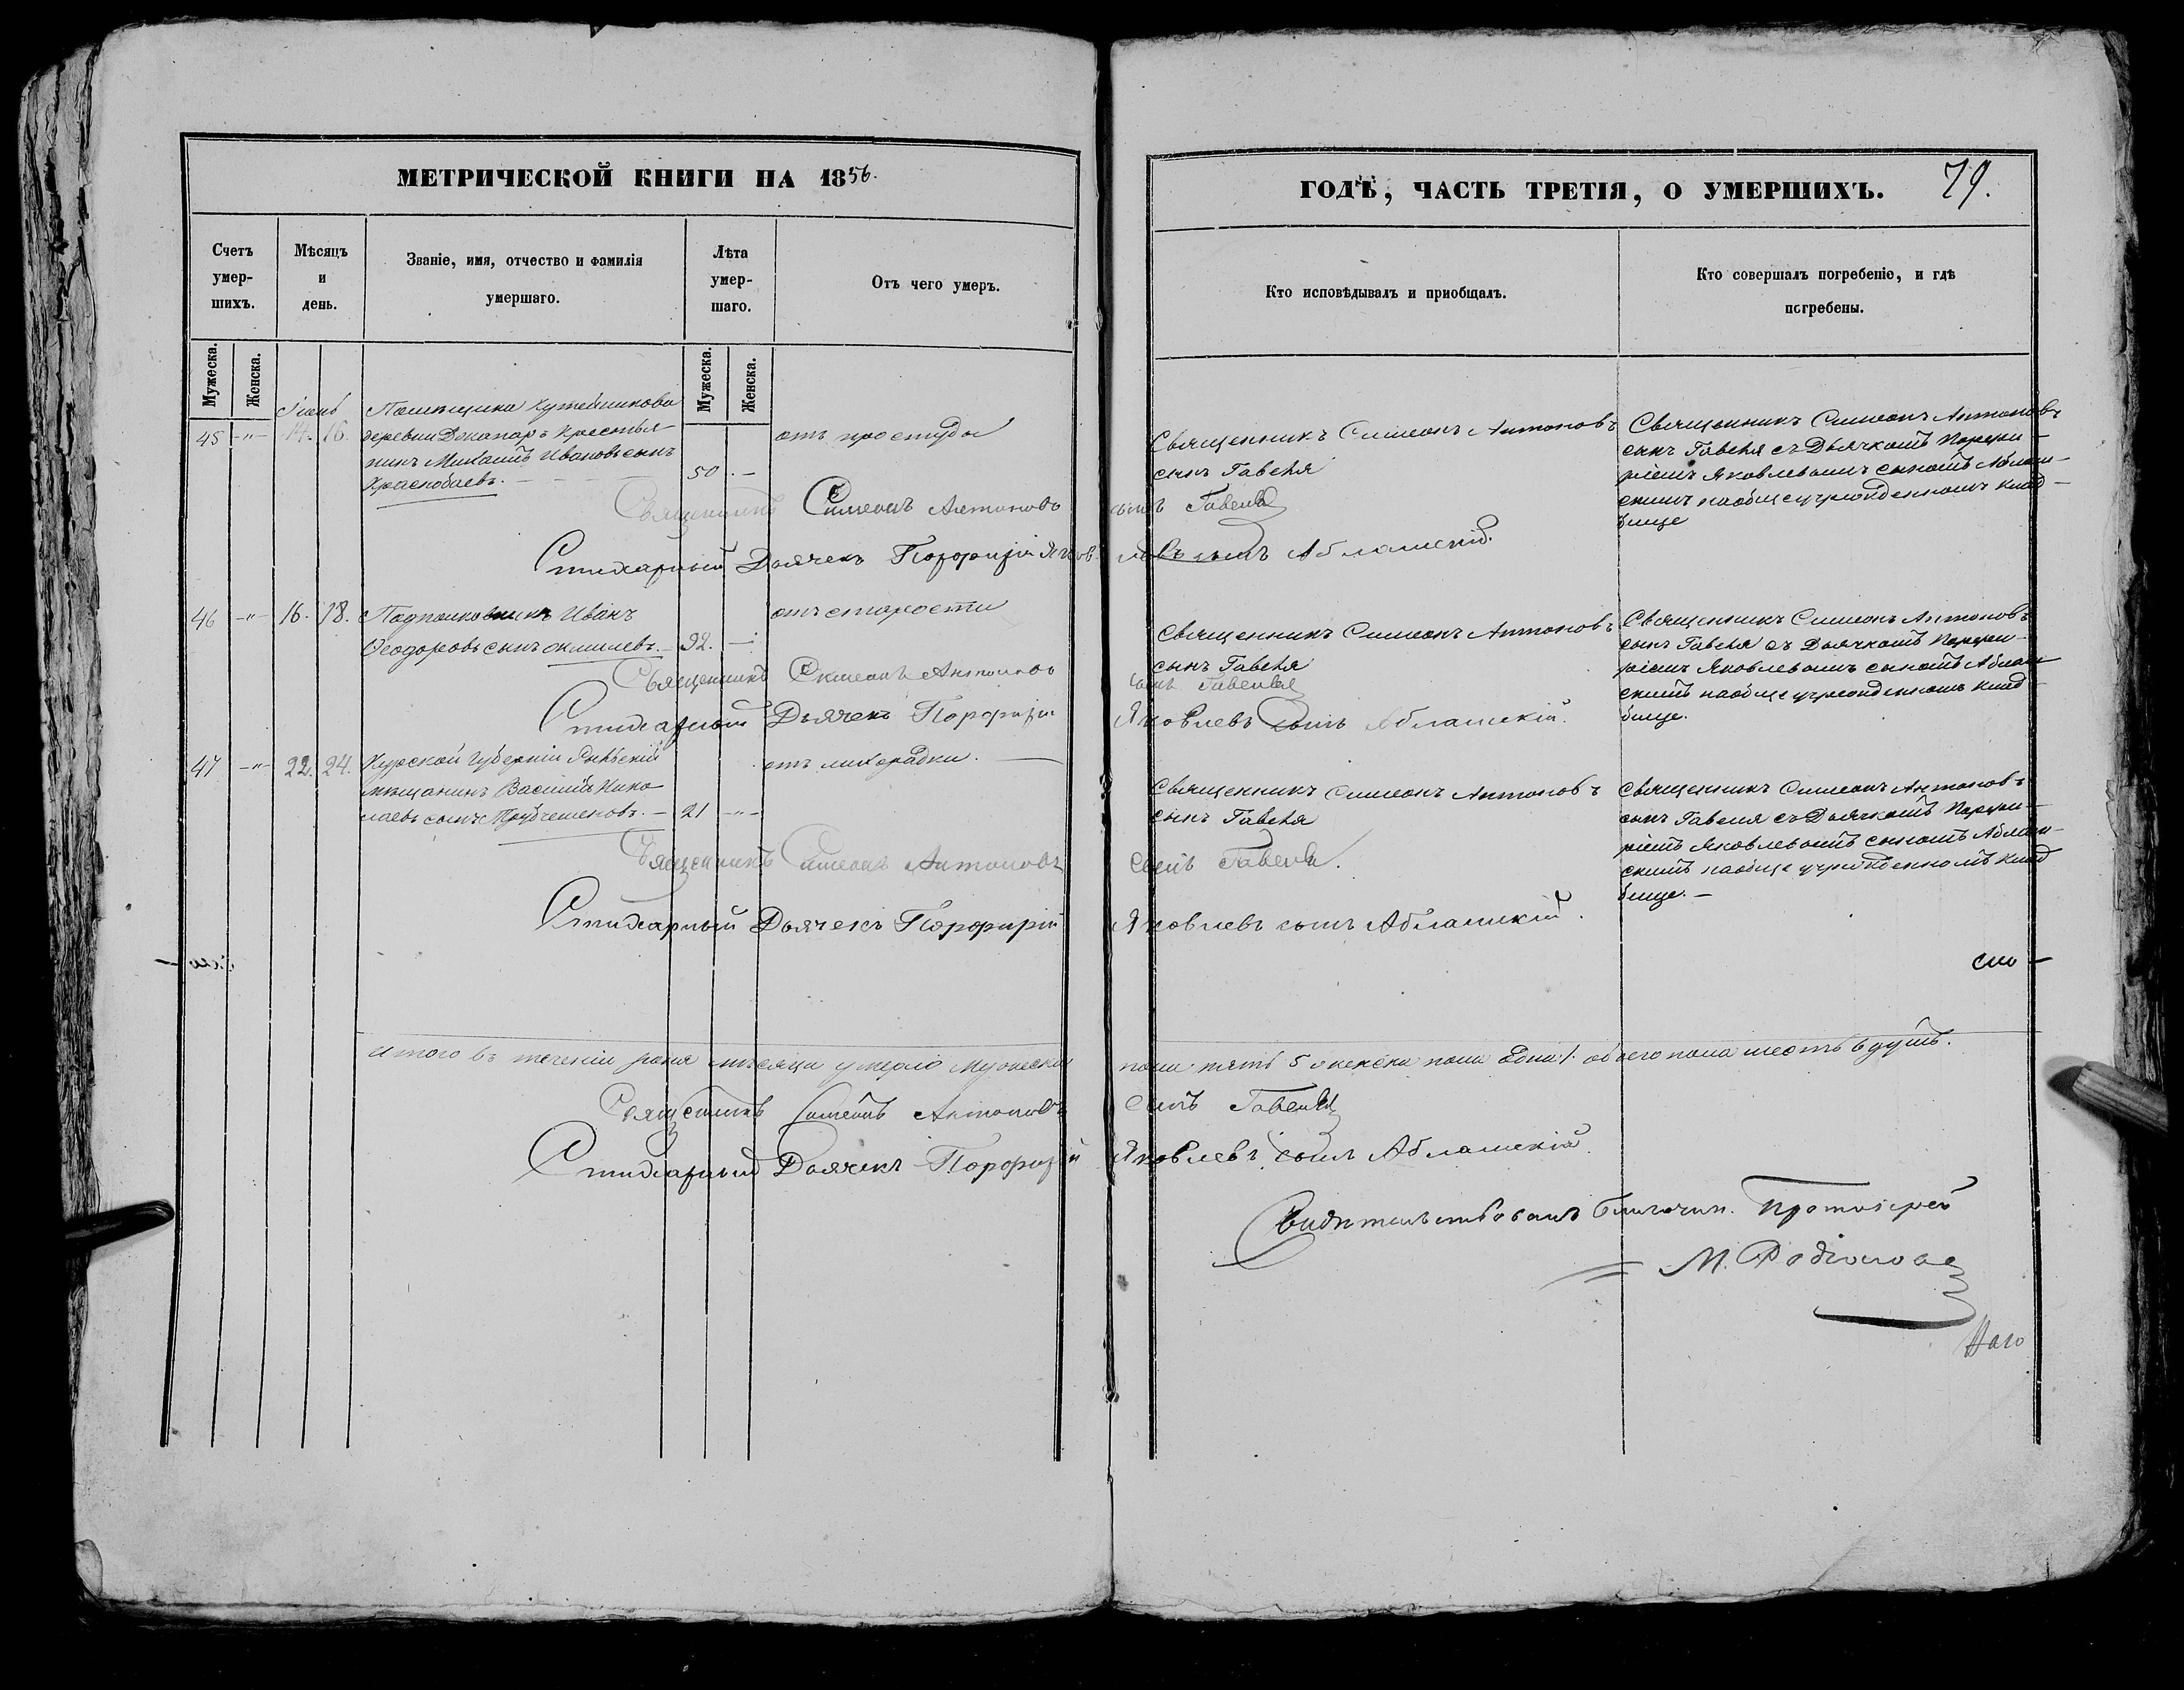 МЕТРИЧЕСКОЙ КНИГИ НА 1856.
Счетъ умер-шихъ.
Мѣсяцъ и день.
Званіе, имя, отчество и фамилія умершаго.
Лѣта умер-шаго.
Отъ чего умеръ.
Мужеска.
Женска.
Мужеска.
Женска.
45 -"- 14. 16.
Помѣщика Кутейникова
деревни крестья-
нинъ Михаилъ Ивановъ сынъ
Краснобаевъ.
50 -
отъ простуды
Священникъ Симеонъ Антоновъ
Стихарный Дьячекъ Порфирій Яков
46 -"- 16. 18.
Подполковникъ Иванъ
Ѳеодоровъ сынъ
92. -
отъ старости
Священникъ Симеонъ Антоновъ
Стихарный Дьячекъ Порфирій
47 -"- 22. 24.
Курской Губерніи Рыльскій
мѣщанинъ Василій Нико
лаевъ сынъ
21 -"-
отъ лихорадки.
Священникъ Симеонъ Антоновъ
Стихарный Дьячекъ Порфирій
Итого въ теченіи мѣсяца умерло мужеска
Священникъ Симеонъ Антоновъ
Стихарный Дьячекъ Порфирій
ГОДѢ, ЧАСТЬ ТРЕТІЯ, О УМЕРШИХЪ.
79.
Кто исповѣдывалъ и приобщалъ.
Кто совершалъ погребеніе, и гдѣ погребены.
Священникъ Симеонъ Антоновъ
сынъ Гавеля
Священникъ Симеонъ Антоновъ
сынъ Гавеля съ Дьячкомъ Порфи-
ріемъ Яковлевымъ сыномъ Аблам-
скимъ на общеучрежденномъ клад-
бище
сынъ Гавеля
левъ сынъ Абламскій.
Священникъ Симеонъ Антоновъ
сынъ Гавеля
Священникъ Симеонъ Антоновъ
сынъ Гавеля съ Дьячкомъ Порфи-
ріемъ Яковлевымъ сыномъ Аблам
скимъ на общеучрежденномъ клад
бище.
сынъ Гавеля
Яковлевъ сынъ Абламскій.
Священникъ Симеонъ Антоновъ
сынъ Гавеля
Священникъ Симеонъ Антоновъ
сынъ Гавеля съ Дьячкомъ Порфи-
ріемъ Яковлевымъ сыномъ Аблам-
скимъ на общеучрежденномъ клад
бище. -
сынъ Гавеля.
Яковлевъ сынъ Абламскій.
пола пять 5 женска пола Една 1. обоего пола шесть 6 душъ.
сынъ Гавеля
Яковлевъ сынъ Абламскій.
Свидѣтельствовалъ Благочин. Протоіерей
М. Родіонов